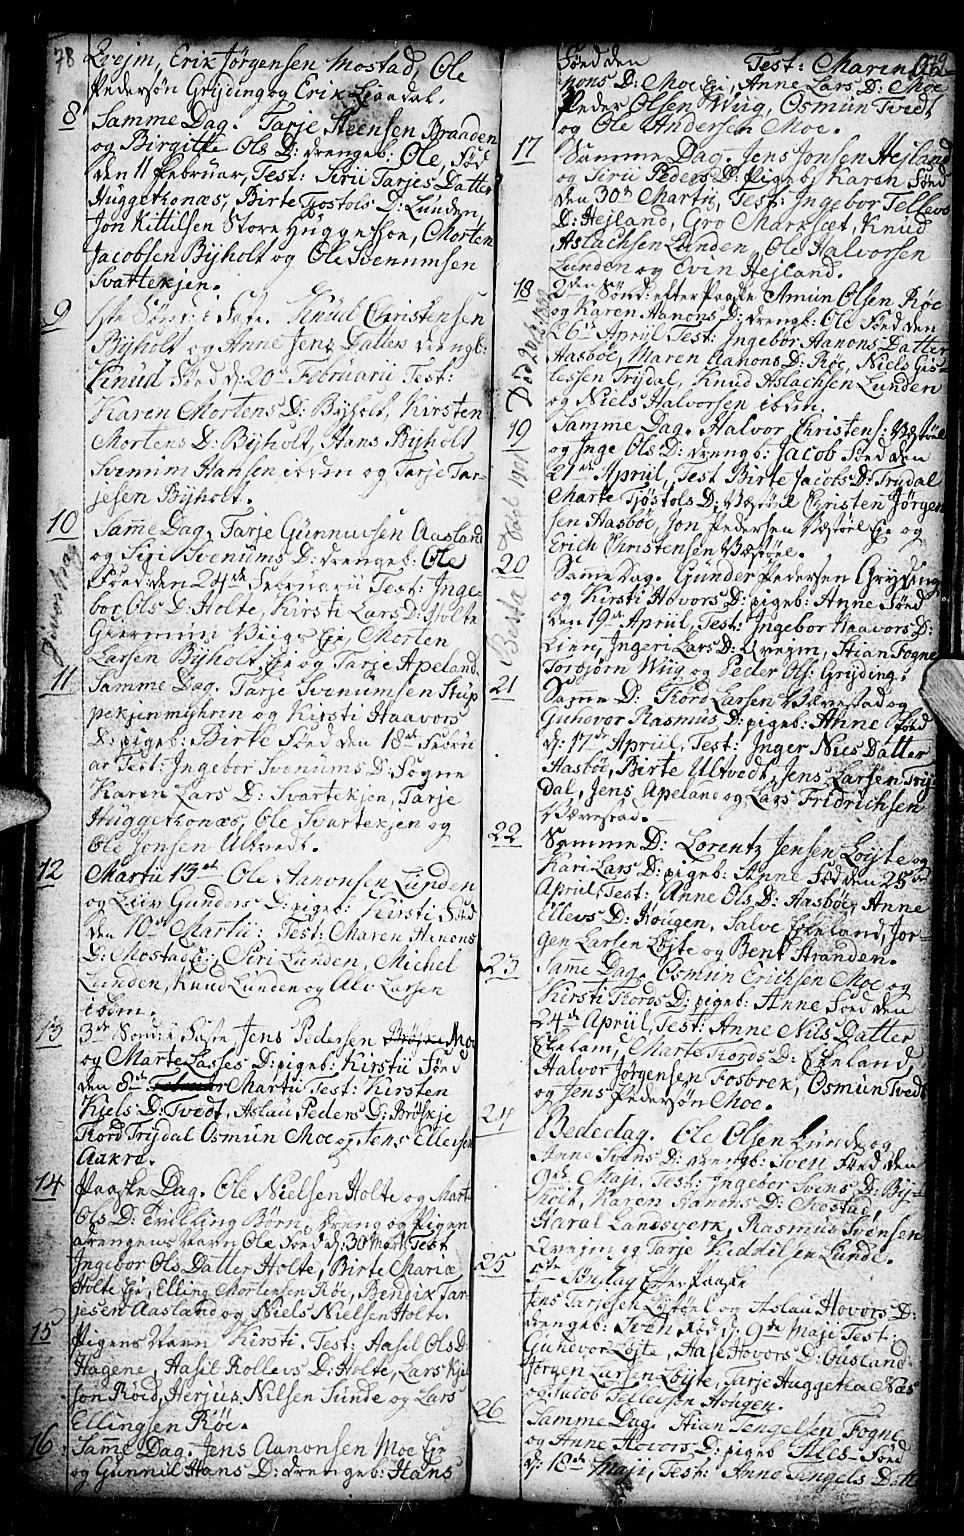 78
Qvejm, Erik Jørgensen Mostad, Ole
Pedersøn Gryding og Erik Livedal.
8
Samme Dag. Tarje Steensen Braaden
og Birgitte Ols D: drengeb: Ole, Fød
den 11 Februar, Test: Siri Tarjes Datter
Huggethonæs, Birte Tjostols D: Lunden,
Jon Kittilsen Store Huggethoe, Morten
Jacobsen Bÿholt og Ole Svenumsen
Svattekjen.
9
Knud Christensen
Bÿholt og Anne Jens Datters drengb:
Knud Fød d: 20de Februarii Test:
Karen Mortens D: Bÿholt, Kirsten
Mortens D: Bÿholt, Hans Bÿholt
Svenum Hansen ibdm og Tarje Tar-
jesen Bÿholt.
10
Samme Dag, Tarje Gunnufsen Aasland
og Siri Svenums D: drengeb: Ole
Fød den 24de Februarii Test: Inge-
bor Ols D: Holte, Kirsti Lars D: Holte
Giermun Viigs Eje, Morten
Larsen Bÿholt Eje og Tarje Apeland
11
Samme Dag. Tarje Svenumsen Stup-
pekjenmyhren og Kirsti Haavors
D: pigeb: Birte Fød den 18de Febru
ar Test: Ingebor Svenums D: Fogne
Karen Lars D: Svartekjen, Tarje
Huggethonæs, Ole Svartekjen og
Ole Jonsen Ultvedt.
12
Martii 13de Ole Aanonsen Lunden
og Live Gunders D: pigeb: Kirsti Fød
den 10de Martii: Test: Maren Aanons
D: Mostade, Siri Lunden, Michel
Lunden, Knud Lunden og Alv Larsen
ibdm.
13
3de Sønd: i Faste, Jens Pedersen Moe
og Marte Lasses D: pigeb: Kirstii Fød
den 8de Februar Martii Test: Kirsten
Niels D: Tvedt, Aslau Peders D: Brøskje
Tord Trÿdal Osmun Moe og Jens Ellevsen
Aakre.
14
Paaske Dag. Ole Nielsen Holte og Marte
Ols D: Tvilling Børn, dreng og Pigen
drengens Navn Ole Fød d: 30 Mart: Test
Ingebor Ols Datter Holte, Birte Mariæ
Holte Eje, Elling Mortensen Røe, Bendix Tar-
jesen Aasland og Niels Nielsen Holte.
15
Pigens Navn Kirsti. Test: Aasil Ols D:
Hagene, Aasil Rollevs D: Holte, Lars
søn Roed, Herjus Nilsen Sunde og Lars
Ellingsen Røe.
16
Samme Dag. Jens Aanonsen Moe Eje
og Gunnil Hans D: drengeb: Hans
Fød den Test: Maren Aa-
nons D: Moe Eje, Anne Lars D: Moe
Peder Olsen Wiig, Osmun Tvedt
og Ole Andersen Moe.
17
Samme Dag. Jens Jonsen Hejland
og Siri Peders D: pigeb: Karen Fød
den 30de Martii, Test: Ingebor Tellevs
D: Hejland, Gro Marksæt, Knud
Aslachsen Lunden, Ole Halvorsen
Lunden og Evin Hejland.
18
2den Sønd: efter Paaske Amun Olsen Røe
og Karen Aanons D: drengb: Ole Fød den
26de April Test: Ingebør Aanons Datter
Aasboe, Maren Aanons D: Røe, Niels Gis-
lessen Trÿdal, Knud Aslachsen Lunden
og Niels Halvorsen ibdm.
19
Samme Dag. Halvor Christens: Væstøel
og Inge Ols D: drengb: Jacob Fød den
21de Apriil, Test Birte Jacobs D: Trÿdal
Marte Tjøstols D: Væstøel Christen Jørgen-
sen Aasboe, Jon Pedersen Væstøel Eje og
Erich Christensen Væstøel.
20
Samme Dag. Gunder Pedersen Grÿting
og Kirsti Hovors D: pigeb: Anne Fød
den 19de Apriil, Test: Ingebor Haavors D:
Lien, Ingeri Lars D: Qvejm, Aian Fogne
Torbjørn Wiig og Peder Ols: Grÿding.
21
Samme D: Tord Larsen Værestad og
Guhovor Rasmus D: pigeb: Anne Fød
d: 17de Apriil, Test: Inger Nies Datter
Aasboe, Birte Ultvedt, Jens Larsen Trÿ-
dal, Jens Apeland og Lars Fridrichsen
Værestad.
22
Samme D: Lorentz Jensen Løyte og
Kari Lars D: pigeb: Anne Fød den 25de
Apriil, Test: Anne Ols D: Aasboe, Anne
Ellevs D: Hougen, Salve Eikeland, Jør-
gen Larsen Løyte og Bent Stranden.
23
Samme Dag. Osmun Erichsen Moe og
Kirsti Tords D: pigeb: Anne Fød den
24de Apriil, Test: Anne Nils Datter
Ekelam, Marte Tords D: Ekeland,
Halvor Jørgensen Fosbrek, Osmun Tvedt
og Jens Pedersøn Moe.
24
Bededag. Ole Olsen Lunde og
Anne Svens D: drengb: Sven Fød den
9de Maji, Test: Ingebor Svens D: Bÿ-
holt, Karen Aanons D: Mostad,
Haral Landsverk, Rasmus Svensen
Qvejm og Tarje Kiddilsen Lunde.
25
5te Søndag Efter Paaske
Jens Tarjesen Løstøel og Aslau Hovors D:
drengeb: Sven Fød d: 9de Maji Test:
Gunevor Løyte, Aase Hovors D: Ousland
Jørgen Larsen Løyte, Tarje Huggethonæs
og Jacob Tellefsen Hougen.
26
Samme Dag. Aian Tengelsen Fogne
og Anne Hovors D: pigeb Fød
d: 18de Maji, Test: Anne Tengels Datt